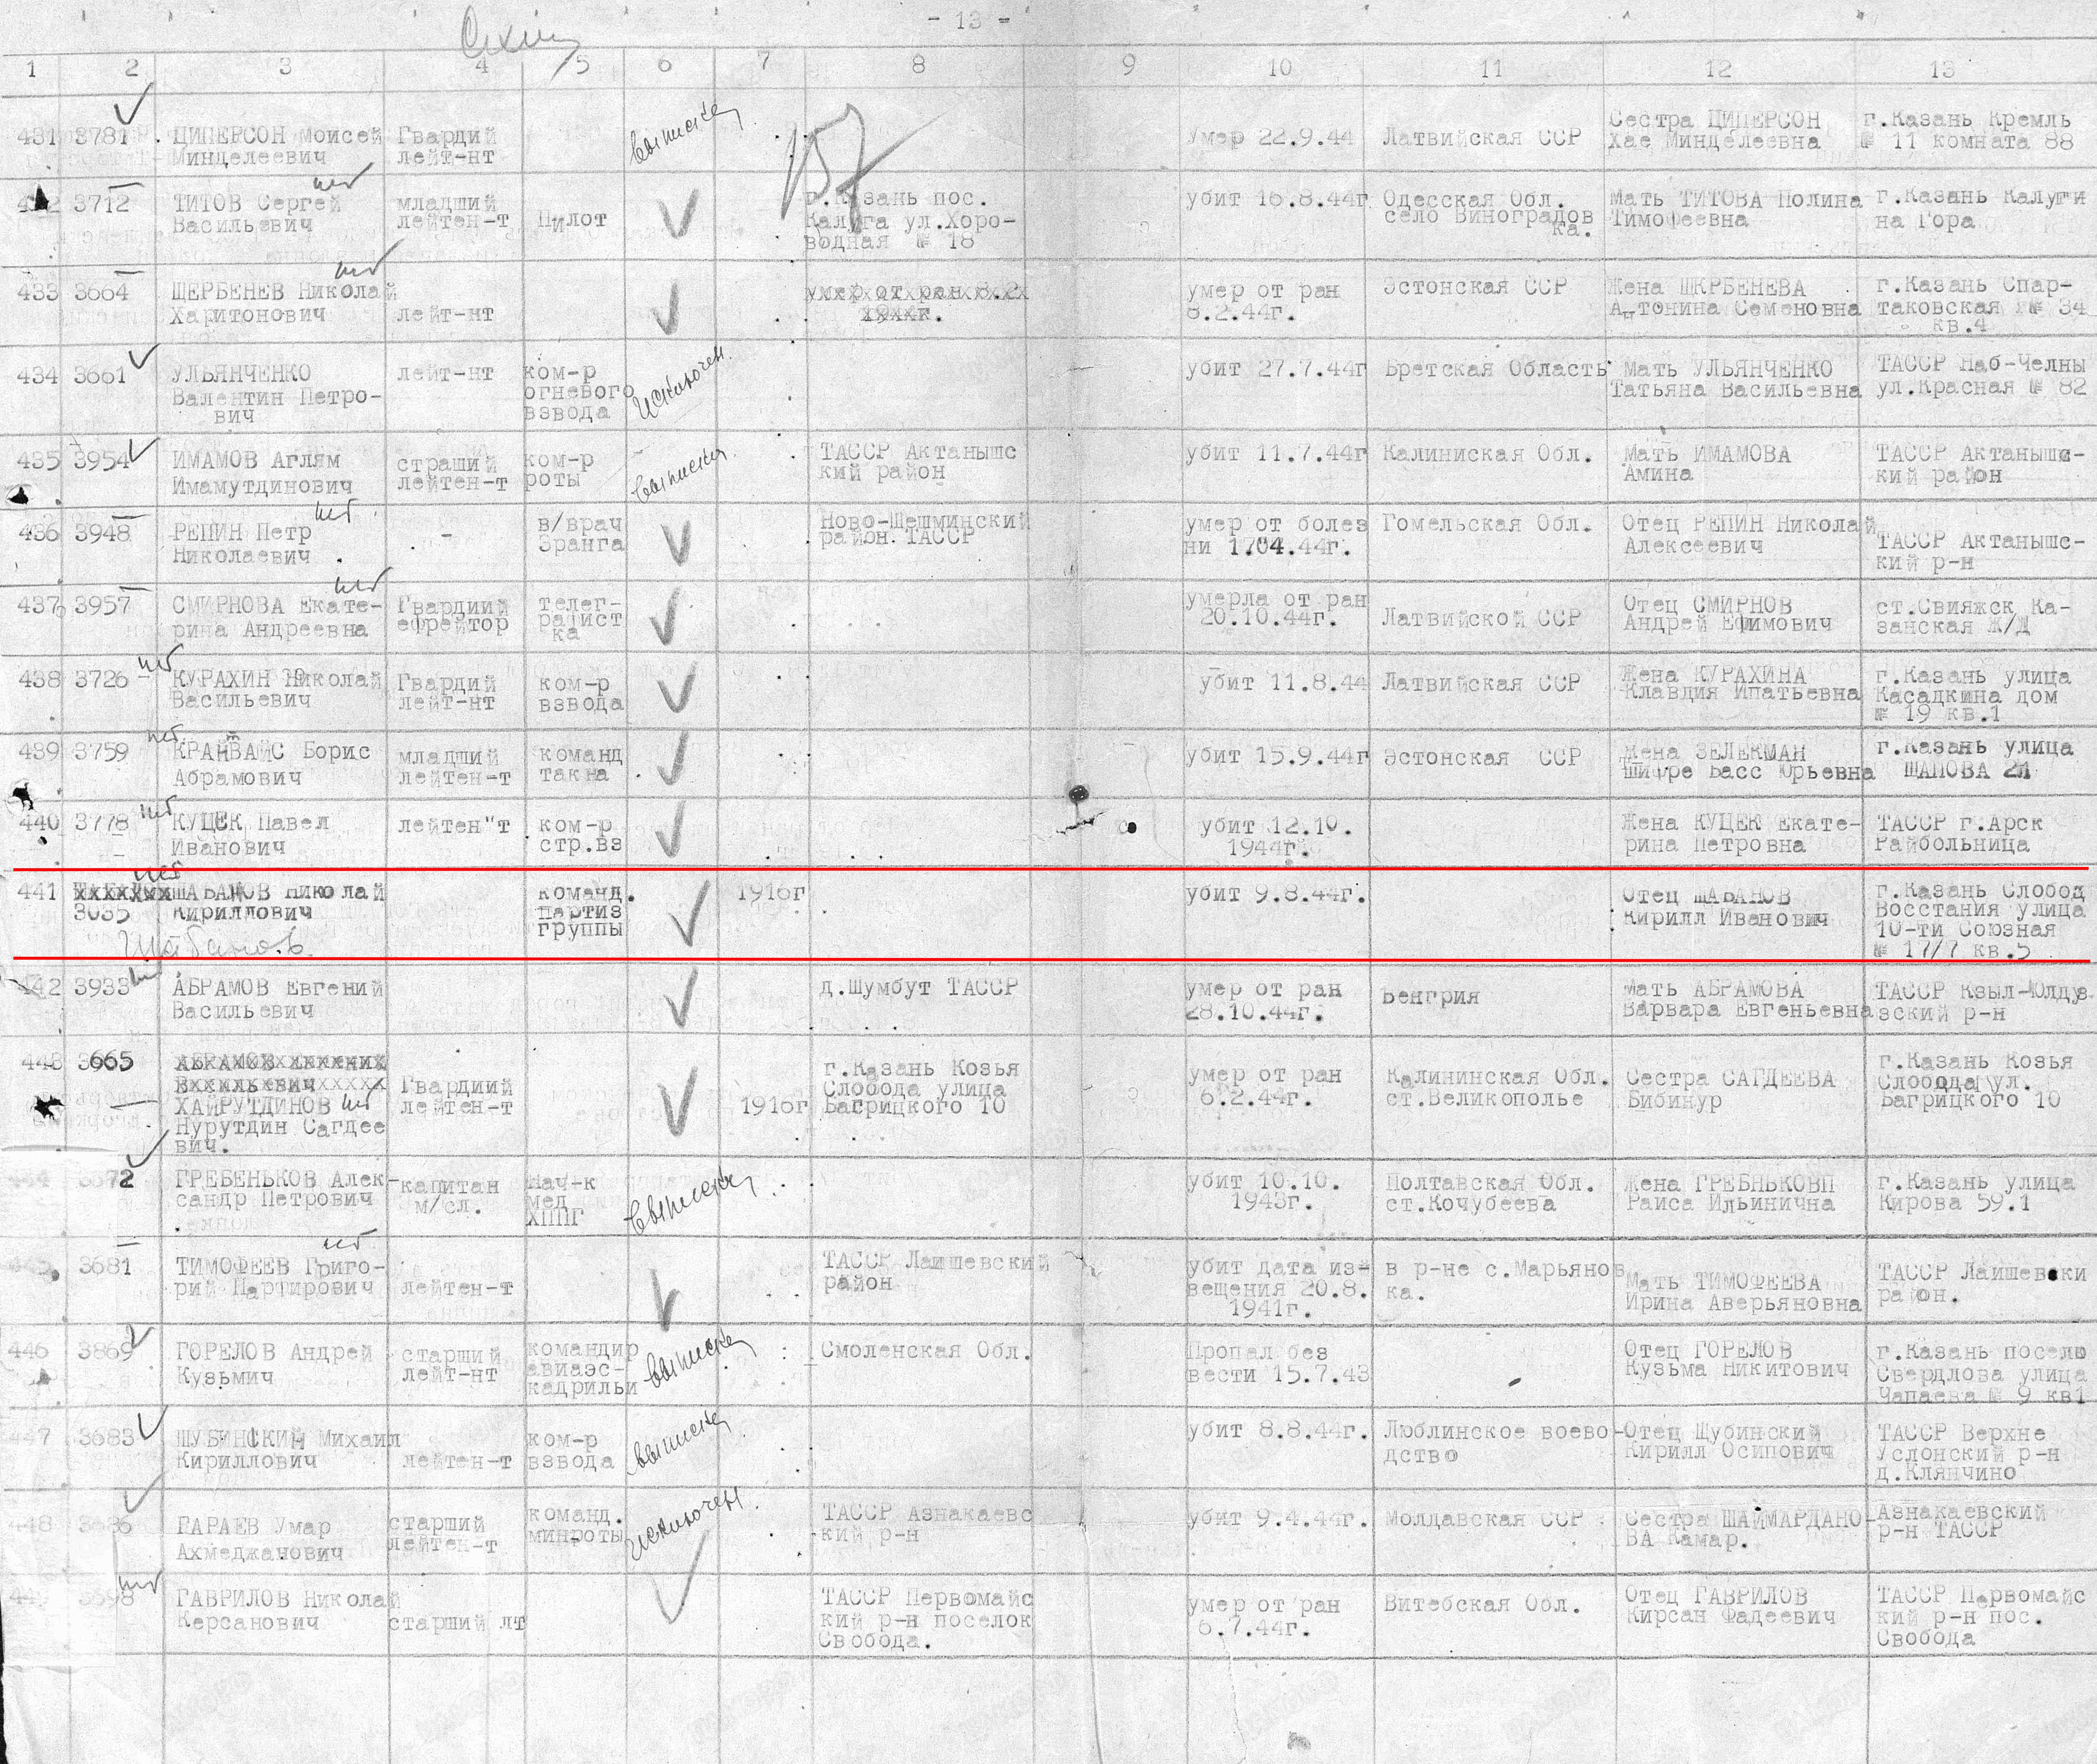 - 13 -
1 2 3 4 5 6 7 8 9 10 11 12 13
157
431 3781 ЦИПЕРСОН Моисей Гвардий выписка Умер 22.9.44 Латвийская ССР Сестра ЦИПЕРСОН г.Казань Кремль
Минделеевич лейт-нт Хае Минделеевна № 11 комната 88
нет
3712 ТИТОВ Сергей младший Пилот г.Казань пос. убит 16.8.44г Одесская Обл. Мать ТИТОВА Полина г.Казань Калуги
Васильевич лейтен-т Калуга ул.Хоро- село Виноградов Тимофеевна на Гора
водная № 18 ка.
нет
433 3664 ЩЕРБЕНЕВ Николай лейт-нт умер от ран 8.2 умер от ран Эстонская ССР Жена ЩКРБЕНЕВА г.Казань Спар-
Харитонович 8.2.44г. Антонина Семеновна таковская № 34
кв.4
434 3661 УЛЬЯНЧЕНКО лейт-нт ком-р исключен. убит 27.7.44г Бретская Область Мать УЛЬЯНЧЕНКО ТАССР Наб-Челны
Валентин Петро- огневого Татьяна Васильевна ул.Красная № 82
вич взвода
435 3954 ИМАМОВ Аглям страший ком-р выписка ТАССР Актанышс убит 11.7.44г Калиниская Обл. Мать ИМАМОВА ТАССР Актанышс-
Имамутдинович лейтен-т роты кий район Амина кий район
нет
436 3948 РЕПИН Петр - в/врач Ново-Шешминский умер от болез Гомельская Обл. Отец РЕПИН Николай ТАССР Актанышс-
Николаевич 3ранга район ТАССР ни 17.04.44г. Алексеевич кий р-н
нет
437 3957 СМИРНОВА Екате- Гвардиий телег- умерла от ран Латвийской ССР Отец СМИРНОВ ст.Свияжск Ка-
рина Андреевна ефрейтор рафист 20.10.44г. Андрей Ефимович занская Ж/Д
ка
нет
438 3726 КУРАХИН Николай Гвардий ком-р убит 11.8.44 Латвийская ССР Жена КУРАХИНА г.Казань улица
Васильевич лейт-нт взвода Клавдия Ипатьевна Касадкина дом
№ 19 кв.1
нет
439 3759 КРАЙВАЙС Борис младший команд убит 15.9.44г Эстонская ССР Жена ЗЕЛЕКМАН г.Казань улица
Абрамович лейтен-т такна Шифре Басс Юрьевна ШАПОВА 21
нет
440 3778 КУЦЕК Павел лейтен"т ком-р убит 12.10. Жена КУЦЕК Екате- ТАССР г.Арск
Иванович стр.вз 1944г. рина Петровна Райбольница
нет
441 ШАБАНОВ Николай команд. 1916г убит 9.8.44г. Отец ШАБАНОВ г.Казань Слобод
3635 Кириллович партиз Кирилл Иванович Восстания улица
группы 10-ти Союзная
Шабанов № 17/7 кв.5
442 3933 АБРАМОВ Евгений д.Шумбут ТАССР умер от ран Венгрия Мать АБРАМОВА ТАССР Кзыл-Юлдуз
Васильевич 28.10.44г. Варвара Евгеньевна зский р-н
443 3665 АБРАМОВ Евгений г.Казань Козья умер от ран Калининская Обл. Сестра САГДЕЕВА г.Казань Козья
Васильевич Гвардиий Слобода улица 6.2.44г. ст.Великополье Бибинур Слобода ул.
ХАЙРУТДИНОВ нет лейтен-т 1916г Багрицкого 10 Багрицкого 10
Нурутдин Сагдее
вич.
444 3672 ГРЕБЕНЬКОВ Алек- капитан Нач-к выписка убит 10.10. Полтавская Обл. Жена ГРЕБНЬКОВП г.Казань улица
сандр Петрович м/сл. мед 1943г. ст.Кочубеева Раиса Ильинична Кирова 59.1
ХППГ
нет
445 3681 ТИМОФЕЕВ Григо- лейтен-т ТАССР Лаишевский убит дата из- в р-не с.Марьянов Мать ТИМОФЕЕВА ТАССР Лаишевски
рий Парфирович район вещения 20.8. ка. Ирина Аверьяновна район.
1941г.
446 3869 ГОРЕЛОВ Андрей старший командир выписка Смоленская Обл. Пропал без Отец ГОРЕЛОВ г.Казань посело
Кузьмич лейт-нт авиаэс- вести 15.7.43 Кузьма Никитович Свердлова улица
кадрильи Чапаева № 9 кв1
447 3683 ШУБИНСКИЙ Михаил лейтен-т ком-р выписка убит 8.8.44г. Люблинское воево- Отец Шубинский ТАССР Верхне
Кириллович взвода дство Кирилл Осипович Услонский р-н
д.Клянчино
448 3686 ГАРАЕВ Умар старший команд. исключен. ТАССР Азнакаевс убит 9.4.44г. Молдавская ССР Сестра ШАЙМАРДАНО- Азнакаевский
Ахмеджанович лейтен-т минроты кий р-н ВА Камар. р-н ТАССР
нет
449 3698 ГАВРИЛОВ Николай старший лт ТАССР Первомайс умер от ран Витебская Обл. Отец ГАВРИЛОВ ТАССР Первомайс
Керсанович кий р-н поселок 6.7.44г. Кирсан Фадеевич кий р-н пос.
Свобода. Свобода